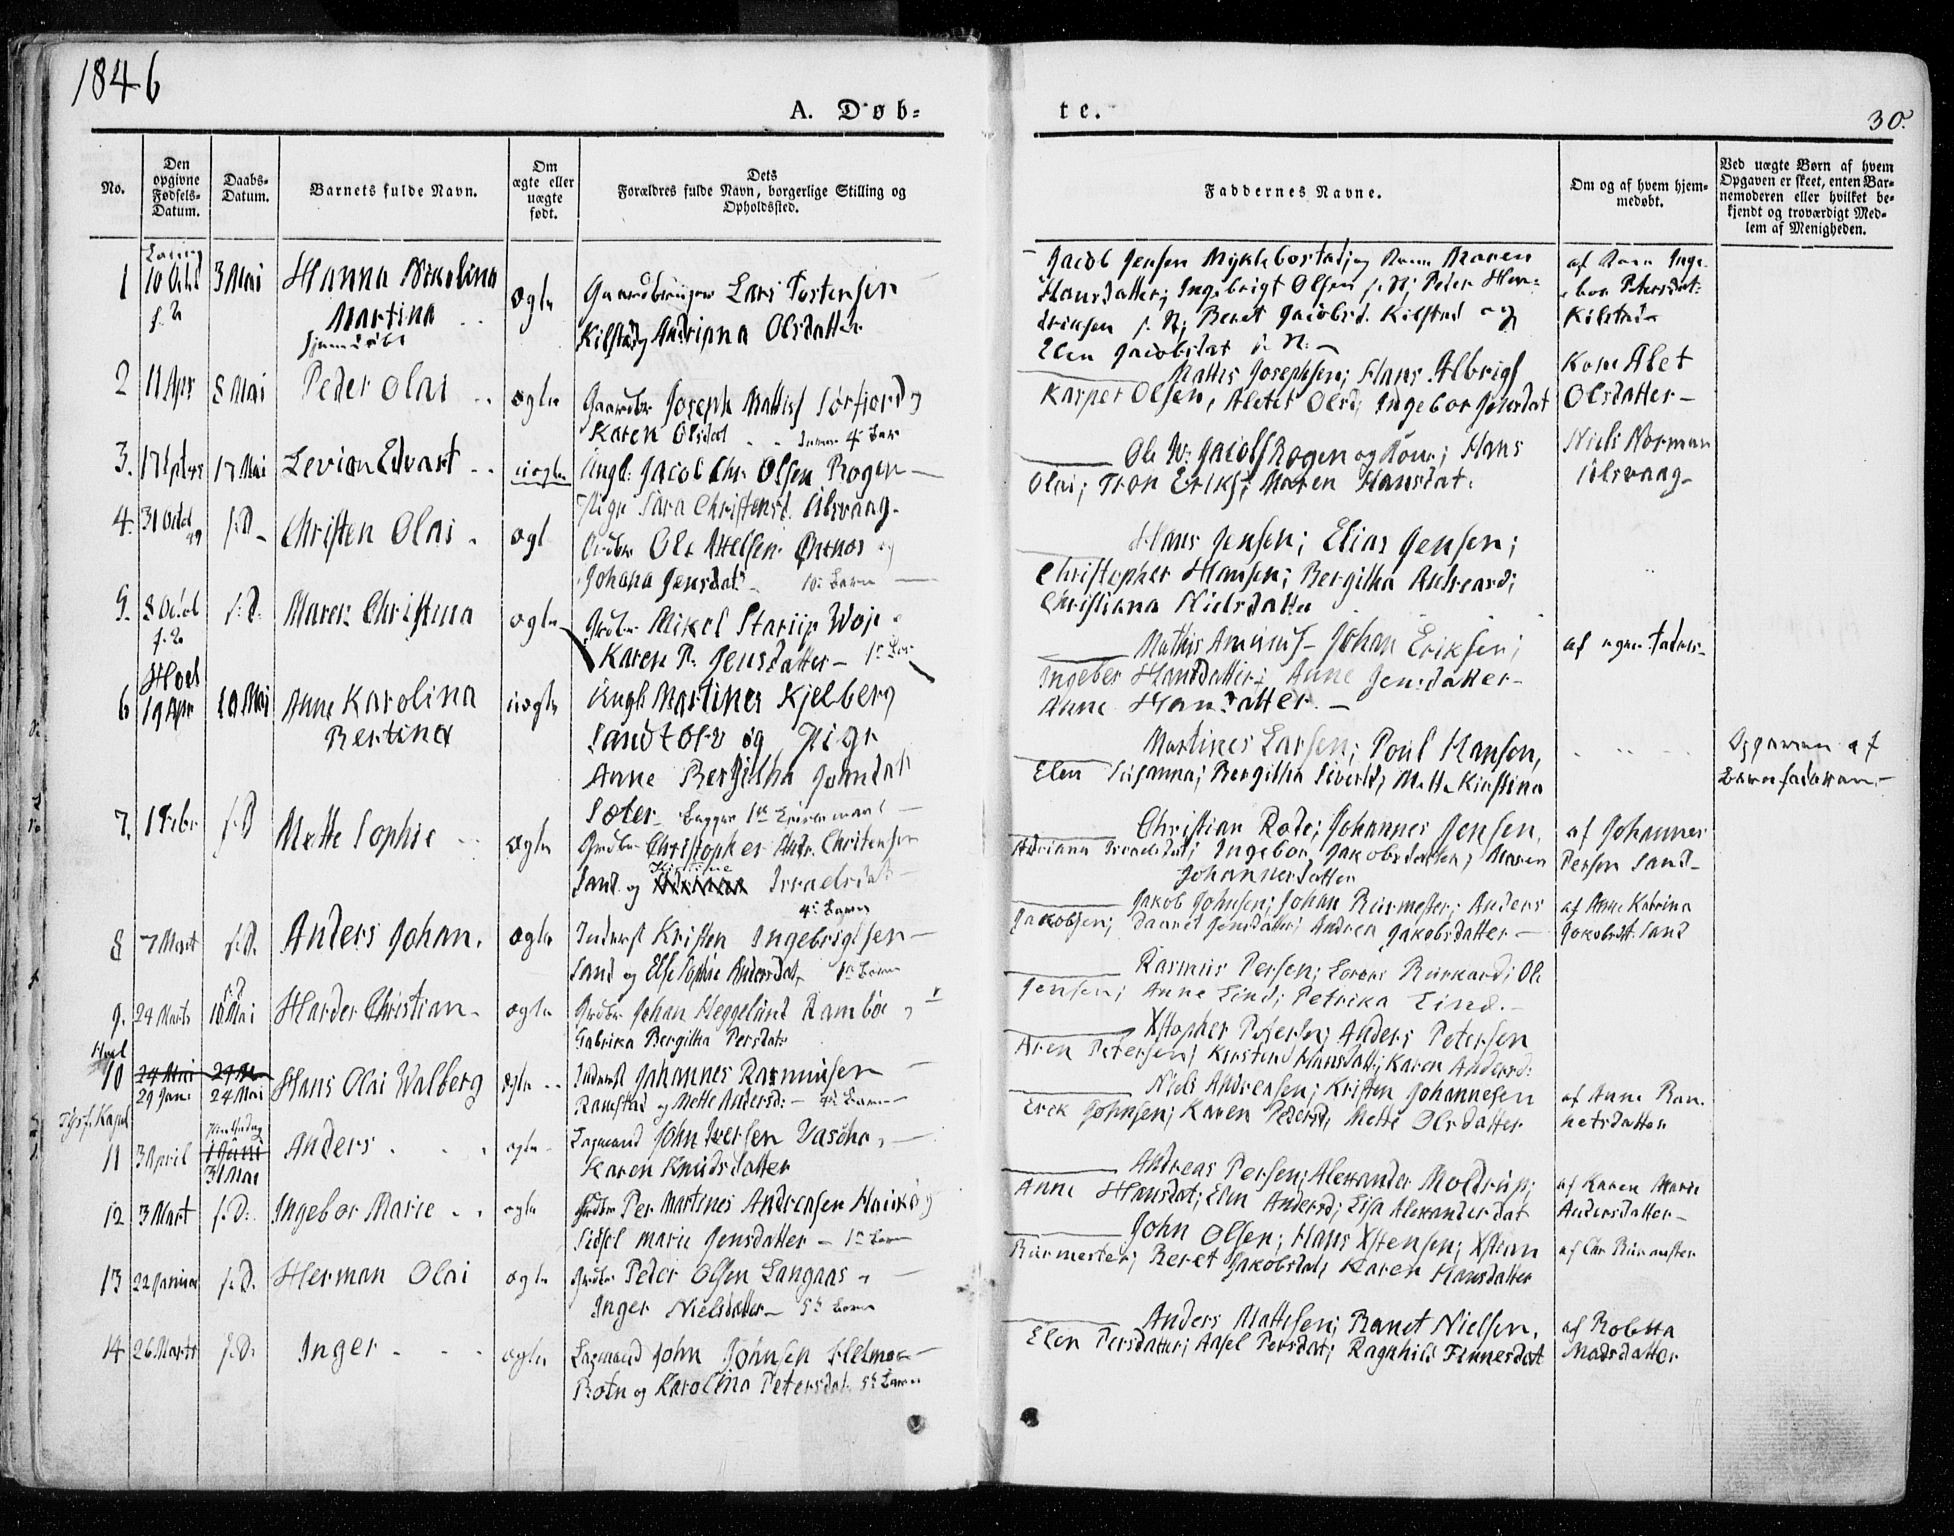 1846
A. Døb=
te.
30.
No.
Den opgivne Fødsels-Datum.
Daabs-Datum.
Barnets fulde Navn.
Om ægte eller uægte født.
Dets Forældres fulde Navn, borgerlige Stilling og Opholdssted.
Faddernes Navne.
Om og af hvem hjem-medøbt.
Ved uægte Børn af hvem Opgaven er skeet, enten Bar-nemoderen eller hvilket be-kjendt og troværdigt Med-lem af Menigheden.
1 3 Mai Hanna Nikolina ægte Lars Tostensen
Martina
Kilstad og Andriana Olsdatter
Jacob Jensen Myklebostad og Kone Maren
Hansdatter; Ingebrigt Olsen Peter Hen=
driksen Beret Jacobsd. Kilstad og
Elen Jacobsdat
af Kone Inge
bor Petersdat:
Kilstad
2 11 Apr 8 Mai Peder Olai ægte Joseph Mattis Sørfjord og
Karen Olsdat 4de Barn
Mattis Josephsen; Hans Albrigt
Kasper Olsen, Aletet Olsd; Ingebor Jensdat
Kone Alet
Olsdatter
3. 17 Mai Levion Edvart uægte Ungk: Jacob Chr. Olsen Rogen
Pige Sara Christensd. Ulsvaag
Ole N. Jacobs Rogen og Kone; Hans
Olai; Tron Eriks; Maren Hansdat.
Niels Norman
Ulsvaag
4. 31 Octob s:D Christen Olai ægte Ole
Johana Jensdat 10de Barn
Hans Jensen; Elias Jensen;
Christopher Hansen; Bergitha Andreasd;
Christiana Nielsdatter
5. 8 Octob s:D: Maren Christina ægte Mikel Starup Woje
Karen P. Jensdatter 1ste Barn
Mathis Johan Eriksen;
Ingeber Hansdatter; Anne Jensdatter
Anne Hansdatter.
af egen Fader
6 19 Apr 10 Mai Anne Karolina uægte Ungk Martines Kjelberg
Bertina
Sandtorv og Pige
Anne Bergitha Johnsdat
Sæter
Martines Larsen; Poul Hansen,
Elen Susanna; Bergitha Siverts; Mette Kirstina
Opgaven af
Barnefaderen
7. 1 Febr s:D Mette Sophie ægte Christopher Andr. Christensen
Sand og Israelsdat
4de Barn
Christian Rode; Johannes Jensen,
Adriana Israelsdat; Ingebor Jakobsdatter; Maren
Johannesdatter
af Johannes
Persen Sand
8 7 Mart s:D. Anders Johan. ægte Inderst Kristen Ingebrigtsen
Sand og Else Sophie Andersdat. 1ste Barn
Jakob Johnsen; Johan Burmester; Anders
Jakobsen; Jensdatter; Andrea Jakobsdatter
af Anne Katrina
Jakobsdt. Sand
9. 24 Marts 10 Mai Harder Christian ægte Johan Heggelund Rambøe
Gabrika Bergitha Persdat
Rasmus Persen; Ole
Jensen; Anne Lind; Petrika Lind.
Hoel
10 24 Mai
29 Jan. 24 Mai Hans Olai Walberg ægte Inderst Johannes Rasmusen
Ramstad og Mette Andersd: 4de Barn
Xstopher Petersen; Anders Petersen
Aren Petersen; Kirsten Hansdatt; Karen Andersd:
11 3 April 1 Juni
31 Mai Anders ægte Lapmand John Iversen Vascha
Karen Knudsdatter
Niels Andreasen; Kristen Johannesen
Erek Johnsen; Karen Pedersd; Mette Olsdatter
af Anne Ran
netsdatter
12 3 Mart s:D: Ingebor Marie ægte Per Martines Andreasen
Sidsel Marie Jensdatter 1ste Barn
Andreas Persen; Alexander Moldrup;
Anne Hansdat; Elen Andersd; Elsa Alexanderdat
af Karen Marie
Andersdatter
13 22 Januar s:D. Herman Olai ægte Peder Olsen Langaas
Inger Nielsdatter 5te Barn
John Olsen; Hans Xstensen; Xstian
Burmester; Beret Jakobsdat; Karen Hansdatter
af Chr Burmester
14 26 Marts s:D. Inger ægte Lapmand John Johnsen Helmoe
Botn og Karolina Petersdat. 5te Barn
Anders Mattisen; Ranet Nielsen.
Elen Persdatter; Axsel Persdat; Ragnhild Finnesdat
af Robetta
Madsdatter